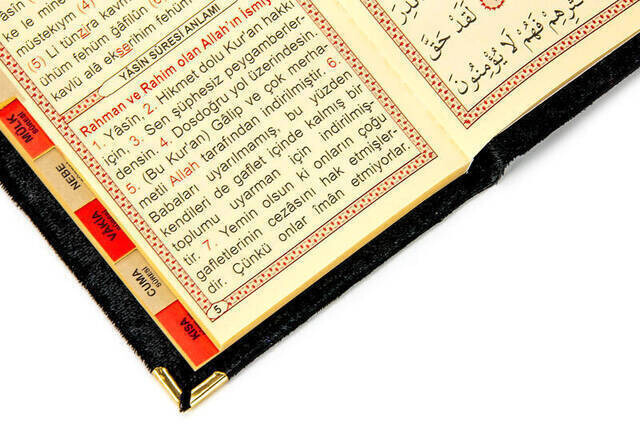 ke le mine
müstekıym (4)
(5) Li tünzira kavmen
ühüm fehüm ğâfilûn (
kavlü alâ ekserihim fehüm
YÂSİN SÛRESİ ANLAMI
Rahman ve Rahim olan Allah'ın İsmiy
1. Yâsîn. 2. Hikmet dolu Kur'an hakkı
için, 3. Sen şüphesiz peygamberler-
densin. 4. Dosdoğru yol üzerindesin.
5. (Bu Kur'an) Gâlip ve çok merha-
metli Allah tarafından indirilmiştir. 6.
Babaları uyarılmamış, bu yüzden
kendileri de gaflet içinde kalmış bir
toplumu uyarman için indirilmiş-
tir. 7. Yemin olsun ki onların çoğu
gafletlerinin cezâsını hak etmişler-
dir. Çünkü onlar îmân etmiyorlar.
5
لَقَدْ حَقَّ
فَهُمْ لَا يُؤْمِنُونَ
MÜLK
SÛRESİ
NEBE
VÂKIA
CUMA
SÛRESİ
KISA